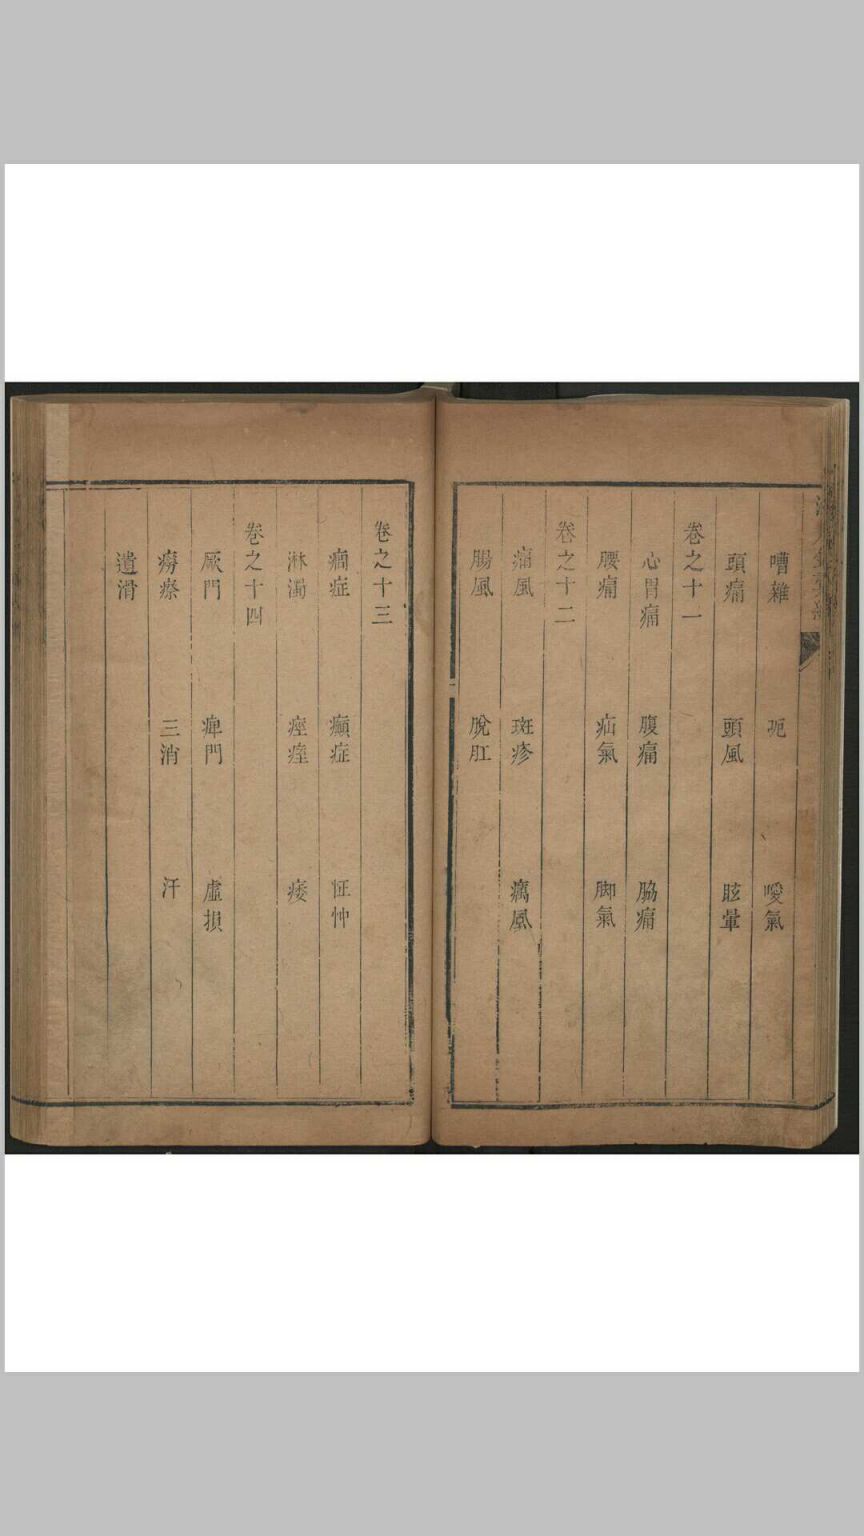 嘈雜 呃 噯氣
頭痛 頭風 眩暈
卷之十一
心胃痛 腹痛 脇痛
腰痛 疝氣 脚氣
卷之十二
痛風 斑疹 癘風
腸風 脫肛
卷之十三
癇症 癲症 怔忡
淋濁 痙痓 痿
卷之十四
厥門 痺門 虛損
癆瘵 三消 汗
遺滑